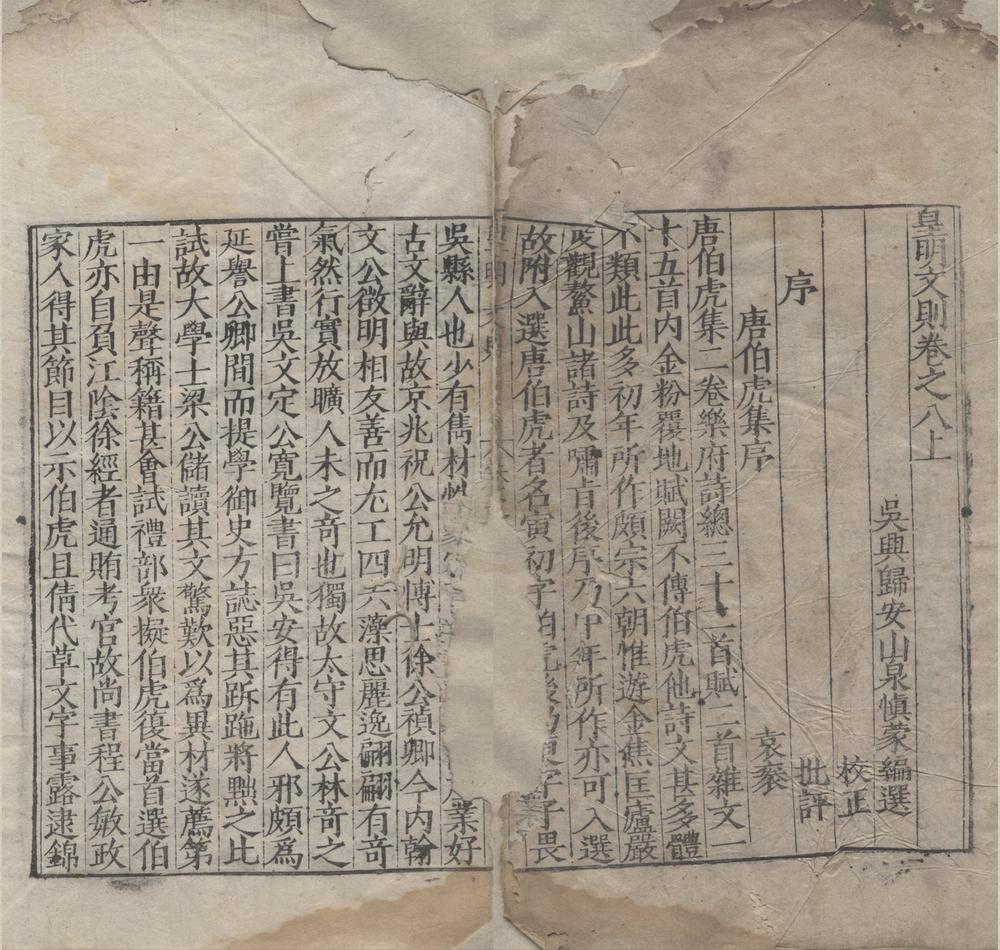 皇明文則卷之八上
吳興歸安山泉愼蒙編選
校正
批評
序
唐伯虎集序
袁袠
唐伯虎集二卷樂府詩總三十二首賦二首雜文一
十五首内金粉覆地賦闕不傳伯虎他詩文甚多體
不類此此多初年所作頗宗六朝惟遊金焦匡廬嚴
觀鰲山諸詩及嘯旨後序乃中年所作亦可入選
故附入選唐伯虎者名寅初字伯虎後乃更字子畏
吳縣人也少有雋材業好
古文辭與故京兆祝公允明博士徐公禎卿今内翰
文公徵明相友善而尤工四六藻思麗逸翩翩有奇
氣然行實放曠人未之奇也獨故太守文公林奇之
嘗上書吳文定公寬覽書曰吳安得有此人邪頗爲
延譽公卿間而提學御史方誌惡其跅跑將黜之此
試故大學士梁公儲讀其文驚歎以爲異材遂薦第
一由是聲稱籍甚會試禮部衆擬伯虎復當首選伯
虎亦自負江陰徐經者通賄考官故尚書程公敏政
家人得其節目以示伯虎且倩代草文字事露逮錦